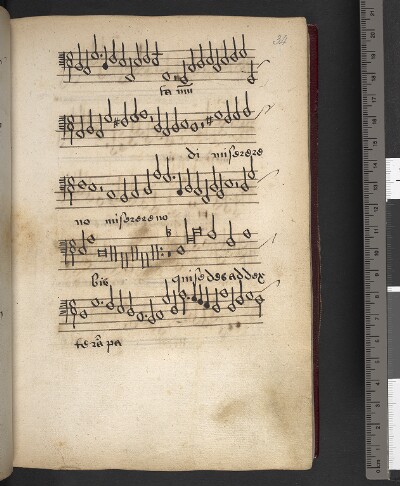 ta mu
di miserere
no miserere no
bis qui sedes ad dex
terã pa